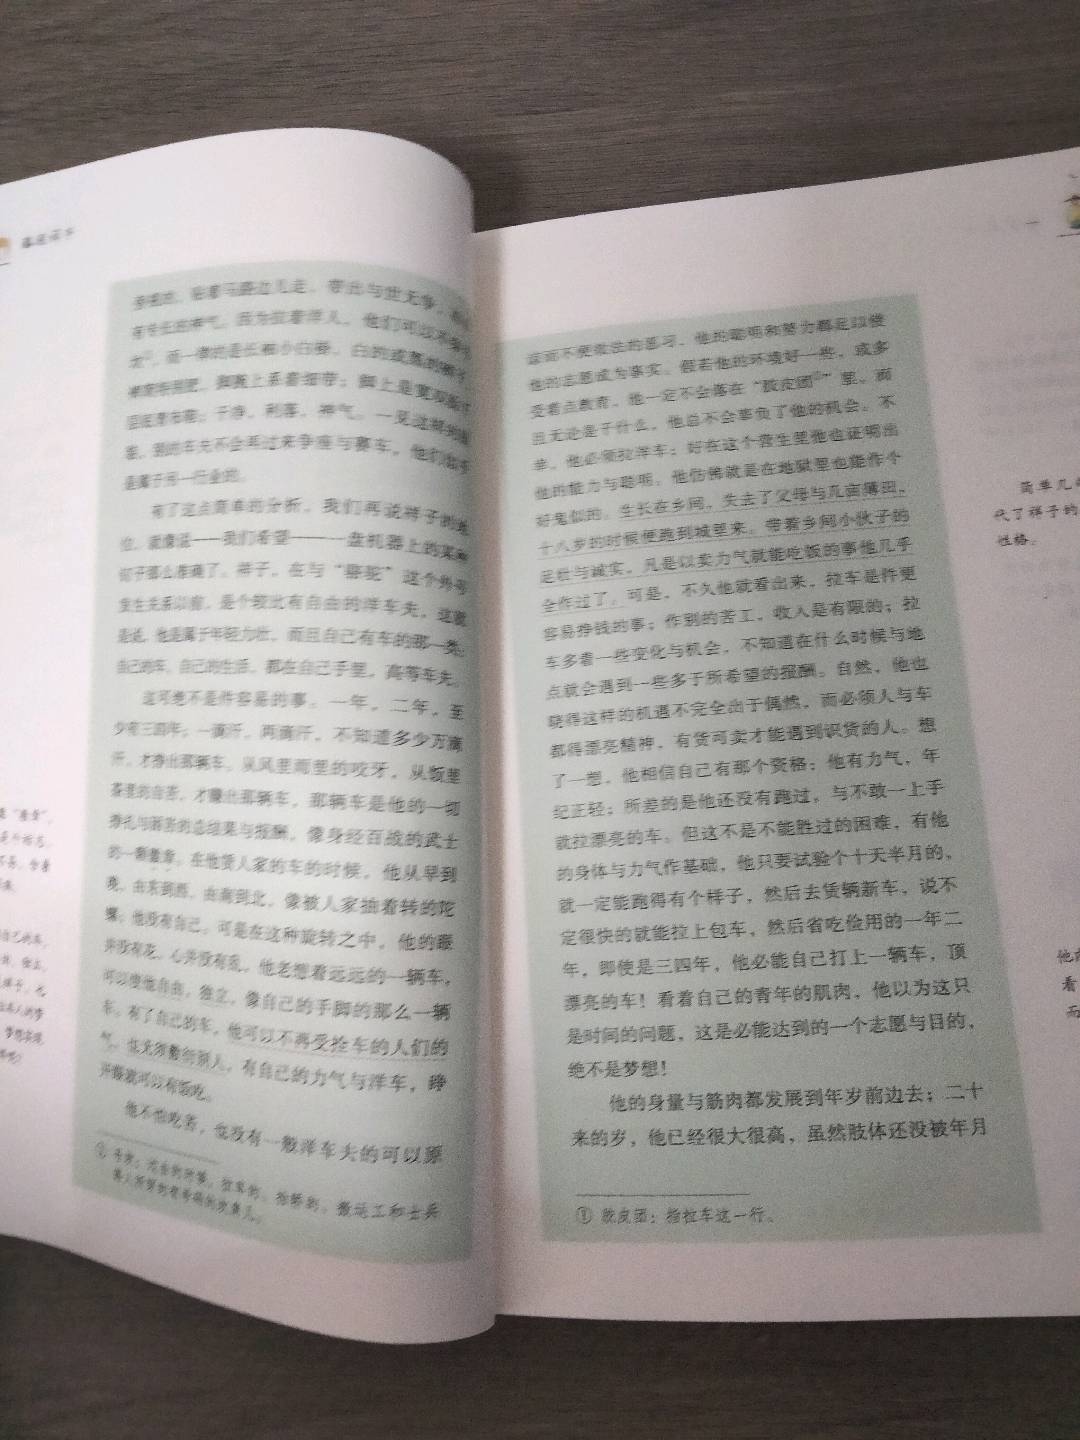 骆驼祥子
旁视的,贴着马路边儿走,带出与世无争,
有专长的神气。因为拉着洋人,他们可以不
龙①,而一律的是长袖小白褂,白的或黑的裤子,
裤筒特别肥,脚腕上系着细带;脚上是宽双脸千
层底青布鞋;干净,利落,神气。一见这样的服
装,别的车夫不会再过来争座与赛车,他们似乎
是属于另一行业的。
有了这点简单的分析,我们再说祥子的地
位,就像说——我们希望——一盘机器上的某种
钉子那么准确了。祥子,在与“骆驼”这个外号
发生关系以前,是个较比有自由的洋车夫,这就
是说,他是属于年轻力壮,而且自己有车的那一类:
自己的车,自己的生活,都在自己手里,高等车夫。
这可绝不是件容易的事。一年,二年,至
少有三四年;一滴汗,两滴汗,不知道多少万滴
汗,才挣出那辆车。从风里雨里的咬牙,从饭里
茶里的自苦,才赚出那辆车。那辆车是他的一切
挣扎与困苦的总结果与报酬,像身经百战的武士
的一颗徽章。在他赁人家的车的时候,他从早到
晚,由东到西,由南到北,像被人家抽着转的陀
螺;他没有自己。可是在这种旋转之中,他的眼
并没有花,心并没有乱,他老想着远远的一辆车,
可以使他自由,独立,像自己的手脚的那么一辆
车。有了自己的车,他可以不再受拴车的人们的
气,也无须敷衍别人;有自己的力气与洋车,睁
开眼就可以有饭吃。
他不怕吃苦,也没有一般洋车夫的可以原
谅而不便效法的恶习,他的聪明和努力都足以使
他的志愿成为事实。假若他的环境好一些,或多
受着点教育,他一定不会落在“胶皮团①”里,而
且无论是干什么,他总不会辜负了他的机会。不
幸,他必须拉洋车;好在这个营生里他也证明出
他的能力与聪明。他仿佛就是在地狱里也能作个
好鬼似的。生长在乡间,失去了父母与几亩薄田,
十八岁的时候便跑到城里来。带着乡间小伙子的
足壮与诚实,凡是以卖力气就能吃饭的事他几乎
全作过了。可是,不久他就看出来,拉车是件更
容易挣钱的事;作别的苦工,收入是有限的;拉
车多着一些变化与机会,不知道在什么时候与地
点就会遇到一些多于所希望的报酬。自然,他也
晓得这样的机遇不完全出于偶然,而必须人与车
都得漂亮精神,有货可卖才能遇到识货的人。想
了一想,他相信自己有那个资格:他有力气,年
纪正轻;所差的是他还没有跑过,与不敢一上手
就拉漂亮的车。但这不是不能胜过的困难,有他
的身体与力气作基础,他只要试验个十天半月的,
就一定能跑得有个样子,然后去赁辆新车,说不
定很快的就能拉上包车,然后省吃俭用的一年二
年,即使是三四年,他必能自己打上一辆车,顶
漂亮的车!看着自己的青年的肌肉,他以为这只
是时间的问题,这是必能达到的一个志愿与目的,
绝不是梦想!
他的身量与筋肉都发展到年岁前边去;二十
来的岁,他已经很大很高,虽然肢体还没被年月
① 胶皮团:指拉车这一行。
简单几
代了祥子的
性格。
看
而